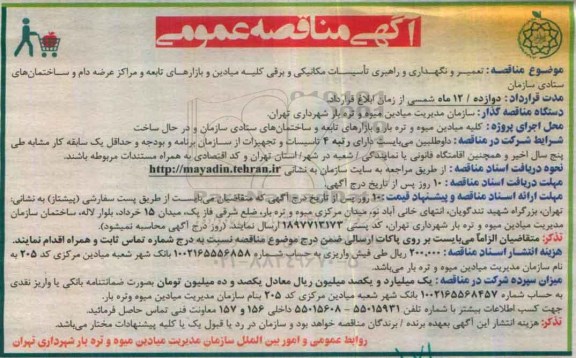 آگهی مناقصه عمومی
موضوع مناقصه: تعمیر و نگهداری و راهبری تأسیسات مکانیکی و برقی کلیه میادین و بازارهای تابعه و مراکز عرضه دام و ساختمان‌های
ستادی سازمان
مدت قرارداد: دوازده / ۱۲ ماه شمسی از زمان ابلاغ قرارداد.
دستگاه مناقصه گذار: سازمان مدیریت میادین میوه و تره بار شهرداری تهران.
محل اجرای پروژه: کلیه میادین میوه و تره بار و بازارهای تابعه و ساختمان‌های ستادی سازمان و در حال ساخت
شرایط شرکت در مناقصه: داوطلبین می‌بایست دارای رتبه ۴ تاسیسات و تجهیزات از سازمان برنامه و بودجه و حداقل یک سابقه کار مشابه طی
پنج سال اخیر و همچنین اقامتگاه قانونی یا نمایندگی / شعبه در شهر/استان تهران و کد اقتصادی به همراه مستندات مربوطه باشند.
نحوه دریافت اسناد مناقصه: از طریق مراجعه به سایت سازمان به نشانی http://mayadin.tehran.ir
مهلت دریافت اسناد مناقصه: ۱۰ روز پس از تاریخ درج آگهی.
مهلت ارائه اسناد مناقصه و پیشنهاد قیمت: ۱۰ روز پس از تاریخ درج آگهی که متقاضیان می‌بایست از طریق پست سفارشی (پیشتاز) به نشانی:
تهران، بزرگراه شهید تندگویان، انتهای خانی آباد نو، میدان مرکزی میوه و تره بار، ضلع شرقی فاز یک، میدان ۱۵ خرداد، بلوار لاله، ساختمان سازمان
مدیریت میادین میوه و تره بار شهرداری تهران، کد پستی ۱۸۹۷۷۱۳۱۷۳ ارسال نمایند. (روز درج آگهی محاسبه نمیشود).
تذکر: متقاضیان الزاماً می‌بایست بر روی پاکات ارسالی ضمن درج موضوع مناقصه نسبت به درج شماره تماس ثابت و همراه اقدام نمایند.
هزینه انتشار اسناد مناقصه: ۲۰۰,۰۰۰ ریال طی فیش واریزی به حساب شماره ۱۰۰۲۱۶۵۵۵۶۸۵۸ بانک شهر شعبه میادین مرکزی کد ۲۰۵ به
نام سازمان مدیریت میادین میوه و تره بار می‌باشد.
میزان سپرده شرکت در مناقصه: یک میلیارد و یکصد میلیون ریال معادل یکصد و ده میلیون تومان بصورت ضمانتنامه بانکی یا واریز نقدی
به حساب شماره ۱۰۰۲۱۶۵۵۶۸۴۵۷ بانک شهر شعبه میادین مرکزی کد ۲۰۵ بنام سازمان مدیریت میادین میوه وتره بار.
جهت کسب اطلاعات بیشتر با شماره تلفن ۵۵۰۱۵۹۳۱ - ۵۵۰۱۵۶۰۸ داخلی ۱۵۶ و ۱۵۷ معاونت فنی تماس حاصل فرمائید.
تذکر: هزینه انتشار این آگهی بعهده برنده / برندگان مناقصه خواهد بود و سازمان در رد یا قبول یک یا کلیه پیشنهادات مختار می‌باشد.
روابط عمومی و امور بین الملل سازمان مدیریت میادین میوه و تره بار شهرداری تهران